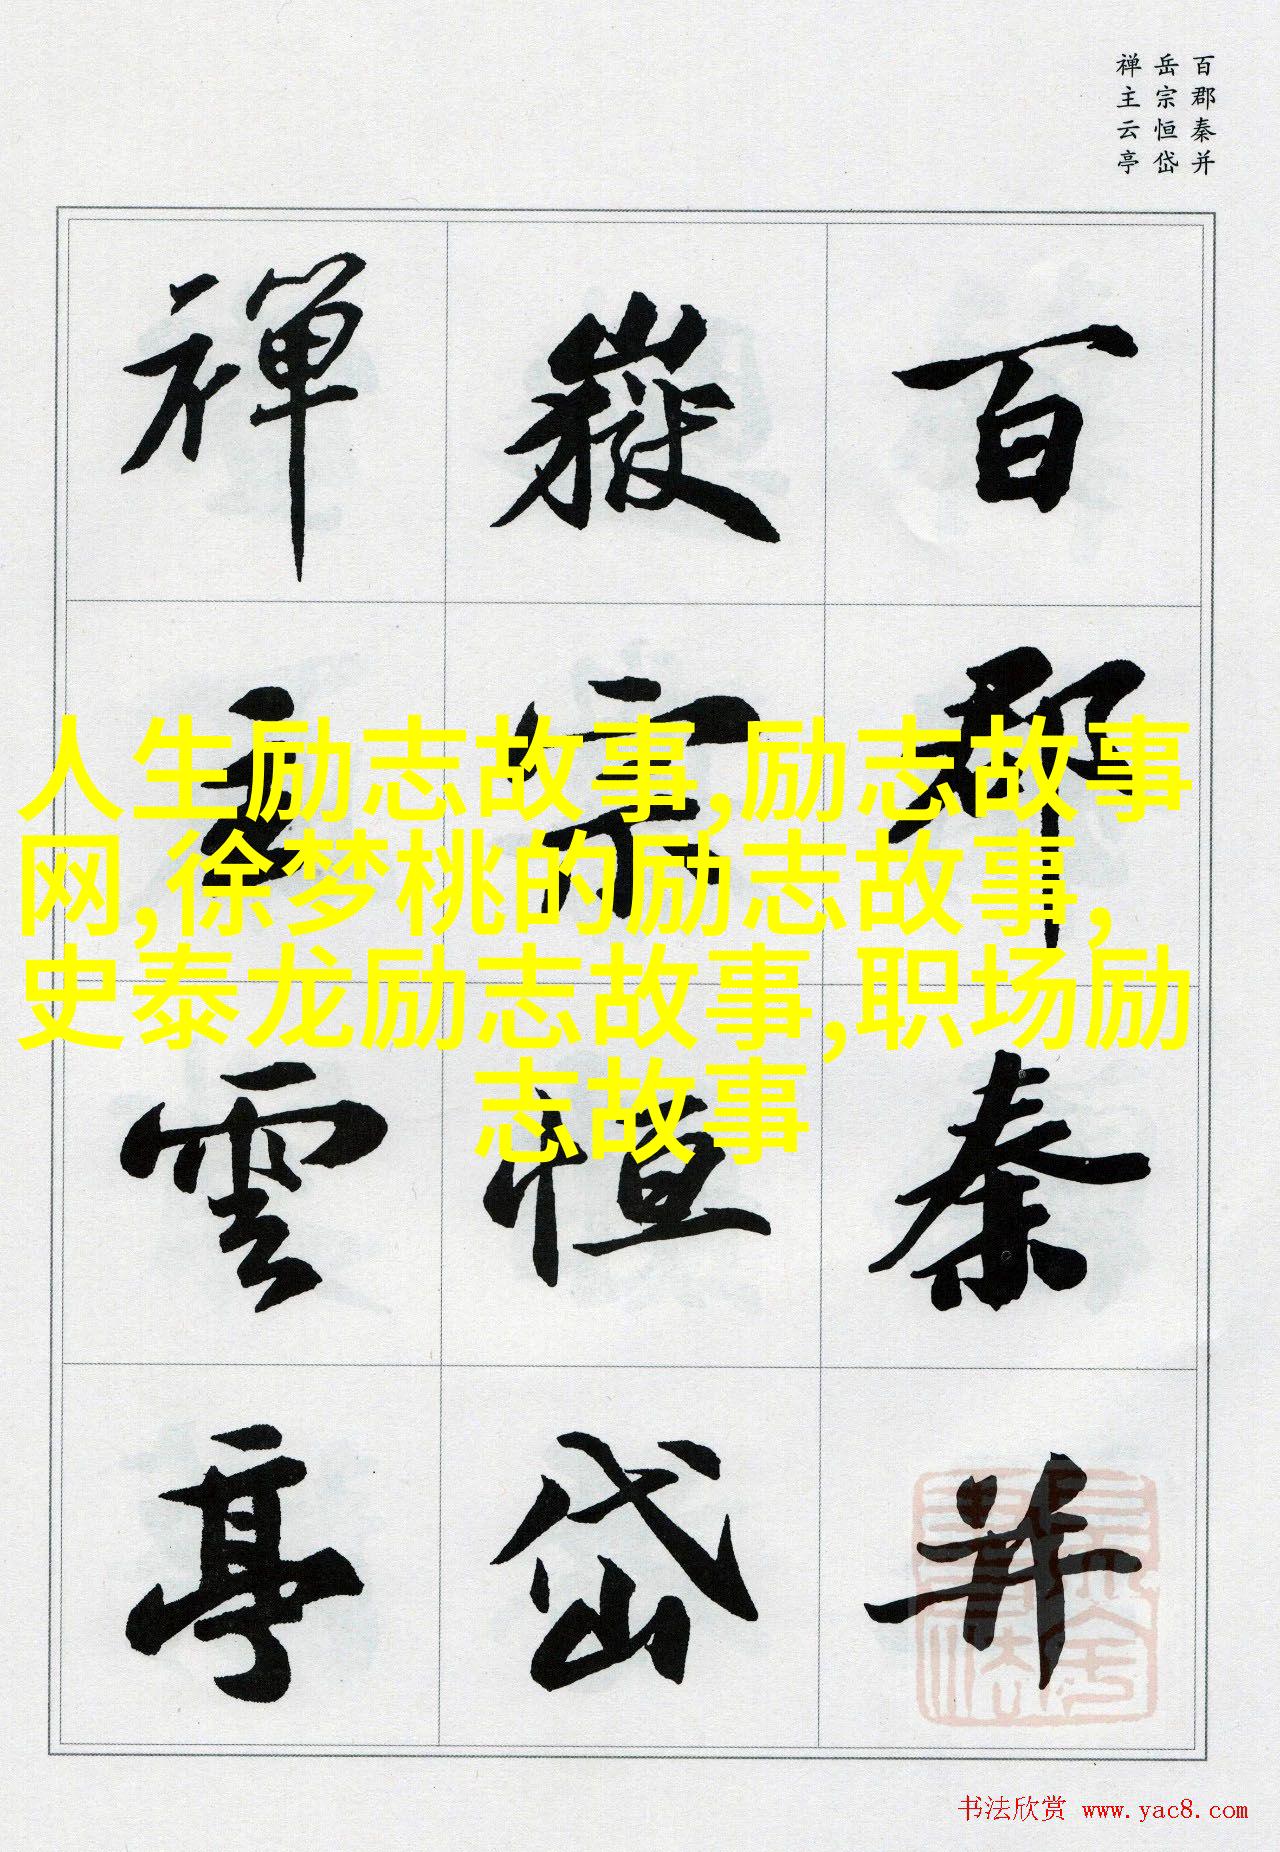 百郡秦并
岳宗恒岱
禅主云亭
百郡秦并
嶽宗恒岱
禅主雲亭
人生励志故事,励志故事
网,徐梦桃的励志故事,
史泰龙励志故事,职场励
志故事
书法欣赏 www.yac8.com